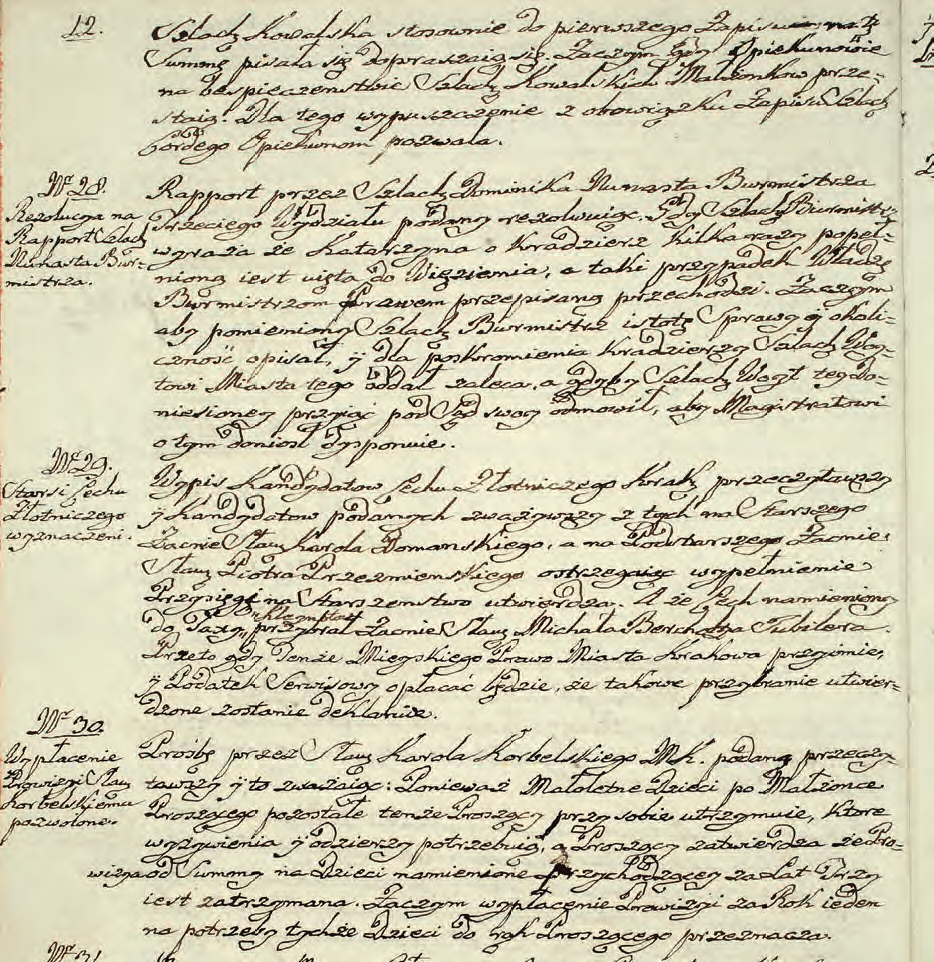 12.
Szlach Kowalska stosownie do pierwszego Zapisu na tę
Summę pisała się dopraszaią się. Zaczym gdy Opiekunowie
na bespieczenstwie Szlach Kowalskich Małżonkow prze-
staią. Dla tego wypuszczenie z obowiązku Zapisu Szlach
Opiekunom pozwala.
Nro 28.
Rezolucya na
Rapport Szlach
Nunasta Bur-
mistrza.
Rapport przez Szlach Dominika Nunasta Burmistrza
Trzeciego Wydziału podany rezolwuiąc. Gdy Szlach Burmistrz
wyraża że Katarzyna o Kradzierz kilka razy popeł-
nioną iest wzięta do Więzienia, a taki przypadek Władzę
Burmistrzom Prawem przepisaną przechodzi. Zaczym
aby pomieniony Szlach Burmistrz istotę Sprawy y okoli-
czność opisał, y dla poskromienia Kradzierzy Szlach Woy-
towi Miasta tego oddał zaleca, a gdyby Szlach Woyt tey do-
niesioney przyiąć pod Sąd swoy odmowił, aby Magistratowi
o tym doniosł dysponuie.
Nro 29.
Starsi Cechu
Złotniczego
wyznaczeni.
Wypis Kandydatow Cechu Złotniczego Krak, przeczytawszy
y Kandydatow podanych zważywszy z tych na Starszego
Zacnie Sław Karola Domanskiego, a na Podstarszego Zacnie
Sław Piotra Przezmienskiego ostrzegaiąc wypełnienie
Przysięgi na Starszenstwo utwierdza. A że Cech namieniony
do Taxy przybrał Zacnie Sław Michała Jubilera.
Przeto gdy Tenże Mieyskiego Prawo Miasta Krakowa przyimie,
y Podatek Serwisowy opłacać będzie, że takowe przybranie utwier-
dzone zostanie deklaruie.
Nro 30.
Wypłacenie
Prowizyi Sław
Korbelskiemu
pozwolone.
Prośbę przez Sław Karola Korbelskiego M.K. podaną przeczy-
tawszy y to zważaiąc: Ponieważ Małoletne Dzieci po Małżonce
Proszącego pozostałe tenże Proszący przy sobie utrzymuie, które
wyżywienia y odzierzy potrzebuią, a Proszący zatwierdza że Pro-
wizya od Summy na Dzieci namienione przychodzącey za Lat Trzy
iest zatrzymana. Zaczym wypłacenie Prowizyi za Rok ieden
na potrzeby tychże Dzieci do rąk Proszącego przeznacza.
Nro 31.